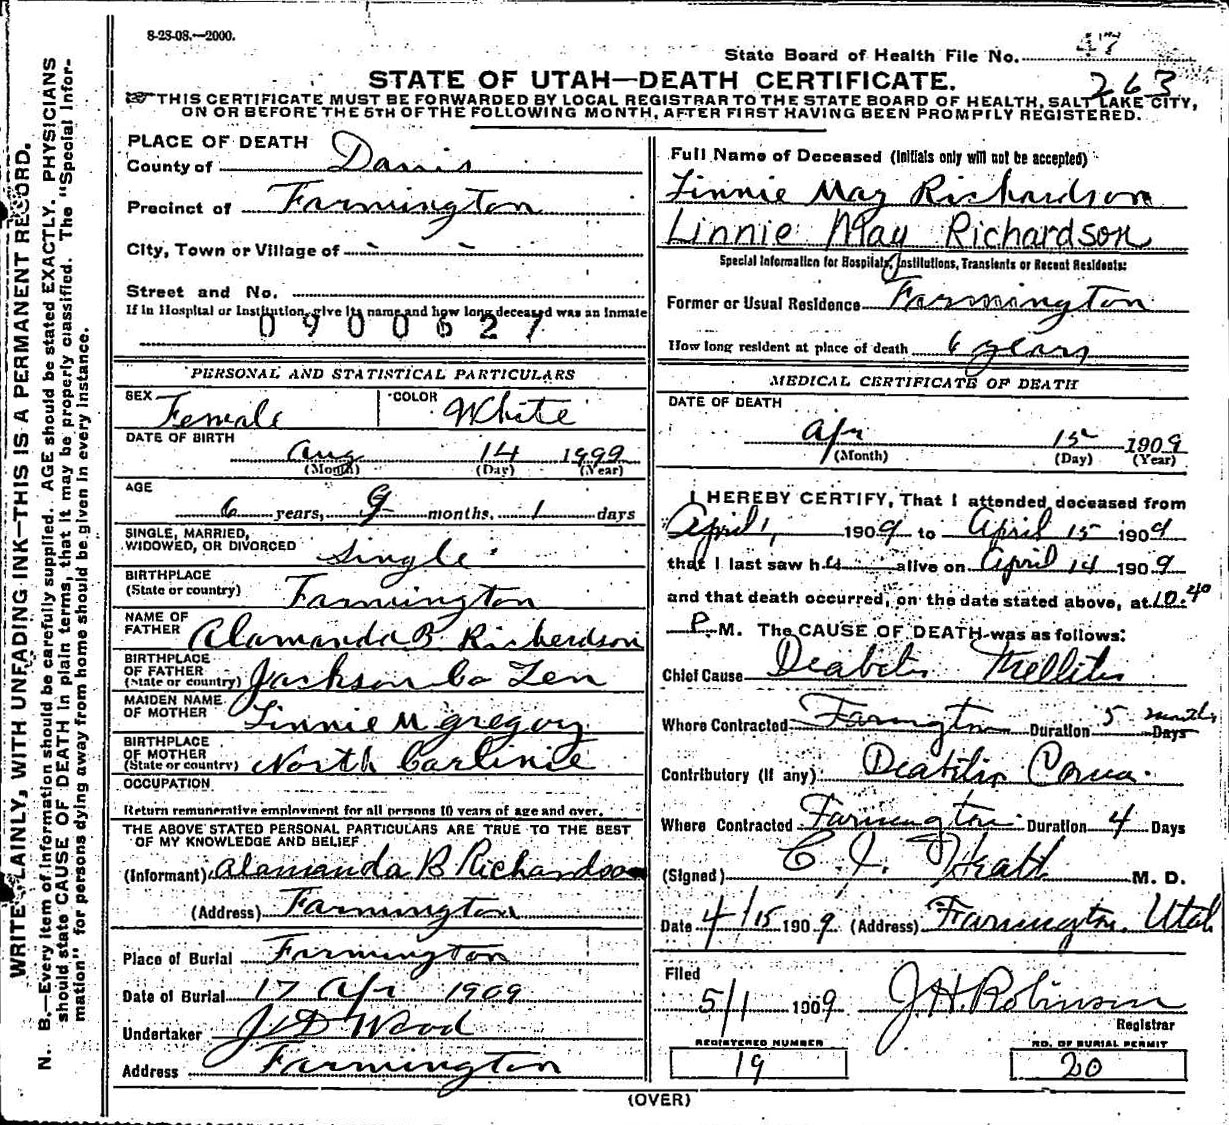 8-23-08.—2000.
State Board of Health File No. 47
263
STATE OF UTAH—DEATH CERTIFICATE.
THIS CERTIFICATE MUST BE FORWARDED BY LOCAL REGISTRAR TO THE STATE BOARD OF HEALTH, SALT LAKE CITY,
ON OR BEFORE THE 5TH OF THE FOLLOWING MONTH, AFTER FIRST HAVING BEEN PROMPTLY REGISTERED.
WRITE PLAINLY, WITH UNFADING INK—THIS IS A PERMANENT RECORD.
N. B.—Every item of information should be carefully supplied. AGE should be stated EXACTLY. PHYSICIANS
should state CAUSE OF DEATH in plain terms, that it may be properly classified. The "Special Infor-
mation" for persons dying away from home should be given in every instance.
PLACE OF DEATH
County of Davis
Precinct of Farmington
City, Town or Village of - -
Street and No.
If in Hospital or Institution, give its name and how long deceased was an Inmate
0900627
PERSONAL AND STATISTICAL PARTICULARS
SEX Female COLOR White
DATE OF BIRTH
Aug 14 1999
(Month) (Day) (Year)
AGE
6 years, 9 months, 1 days
SINGLE, MARRIED,
WIDOWED, OR DIVORCED Single
BIRTHPLACE
(State or country) Farmington
NAME OF
FATHER Alamanda B Richerdson
BIRTHPLACE
OF FATHER
(State or country) Jackson Co Ten
MAIDEN NAME
OF MOTHER Linnie M gregory
BIRTHPLACE
OF MOTHER
(State or country) North Carlinie
OCCUPATION
Return remunerative employment for all persons 10 years of age and over.
THE ABOVE STATED PERSONAL PARTICULARS ARE TRUE TO THE BEST
OF MY KNOWLEDGE AND BELIEF
(Informant) Alamanda B Richardson
(Address) Farmington
Place of Burial Farmington
Date of Burial 17 Apr 1909
Undertaker J D Wood
Address Farmington
Full Name of Deceased (Initials only will not be accepted)
Linnie May Richardson
Linnie May Richardson
Special Information for Hospitals, Institutions, Transients or Recent Residents:
Former or Usual Residence Farmington
How long resident at place of death 6 years
MEDICAL CERTIFICATE OF DEATH
DATE OF DEATH
Apr 15 1909
(Month) (Day) (Year)
I HEREBY CERTIFY, That I attended deceased from
April 1, 1909 to April 15 1909
that I last saw h er alive on April 14 1909
and that death occurred, on the date stated above, at 10.40
P M. The CAUSE OF DEATH was as follows:
Chief Cause Deabetis Mellitis
Where Contracted Farmington Duration 5 months Days
Contributory (if any) Deabitis Coma.
Where Contracted Farmington Duration 4 Days
(Signed) M. D.
Date 4/15 1909 (Address) Farmington. Utah
Filed
5/1 1909 J.H. Robinson
Registrar
REGISTERED NUMBER
19
NO. OF BURIAL PERMIT
20
(OVER)